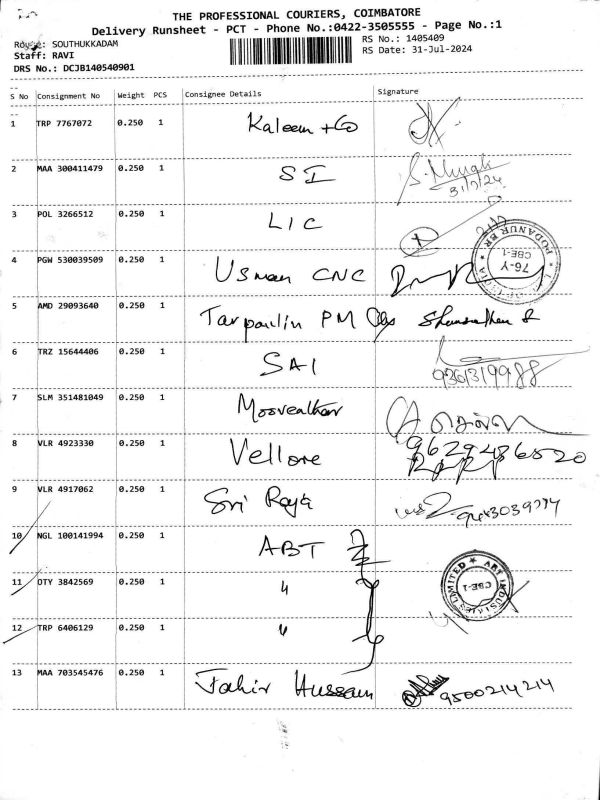 THE PROFESSIONAL COURIERS, COIMBATORE
Delivery Runsheet - PCT - Phone No.:0422-3505555 - Page No.:1
Route: SOUTHUKKADAM
RS No.: 1405409
Staff: RAVI
RS Date: 31-Jul-2024
DRS No.: DCJB140540901
S No Consignment No Weight PCS Consignee Details Signature
1 TRP 7767072 0.250 1 Kaleem + Co
2 MAA 300411479 0.250 1 SI
31/7/24
3 POL 3266512 0.250 1 LIC
PODANUR BR
76-Y
CBE-1
4 PGW 530039509 0.250 1 Usman CNC
5 AMD 29093640 0.250 1 Tarpaulin PM
6 TRZ 15644406 0.250 1 SAI
9361319988
7 SLM 351481049 0.250 1
8 VLR 4923330 0.250 1 Vellore 9629486520
9 VLR 4917062 0.250 1 Sri Raja
10 NGL 100141994 0.250 1 ABT
11 DTY 3842569 0.250 1 "
ABT INDUSTRIES LIMITED
CBE-1
12 TRP 6406129 0.250 1 "
13 MAA 703545476 0.250 1 Tahir Hussain 9500214214